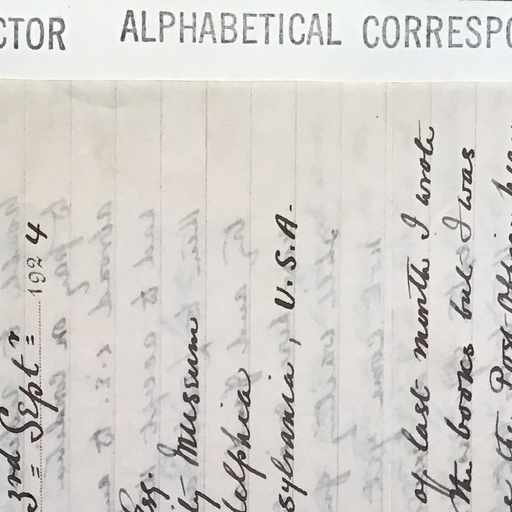 3rd Septr 1924
Esq.
ity Museum
delphia
sylvania, U.S.A.
of last month I wrote
the books but I was
the Post-Office
CTOR ALPHABETICAL CORRESPO